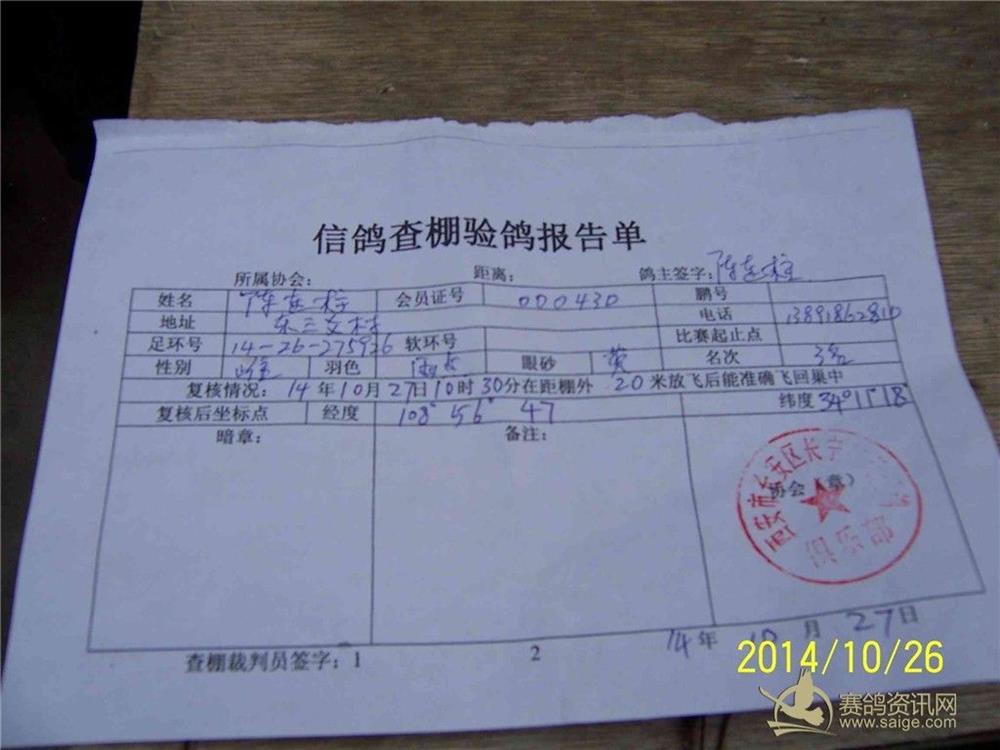 信鸽查棚验鸽报告单
所属协会： 距离： 鸽主签字：陈
姓名 陈 柱 会员证号 000430 鹏号
地址 东三爻村 电话 13891862810
足环号 14-26-275926 软环号 比赛起止点
性别 雄 羽色 雨点 眼砂 黄 名次 3名
复核情况：14年10月27日10时30分在距棚外 20 米放飞后能准确飞回巢中
复核后坐标点 经度 108° 56° 47 纬度 34° 11° 18
暗章： 备注：
西安市长安区长
协会（章）
俱乐部
14年 10 月 27日
查棚裁判员签字：1 2
2014/10/26
赛鸽资讯网
www.saige.com